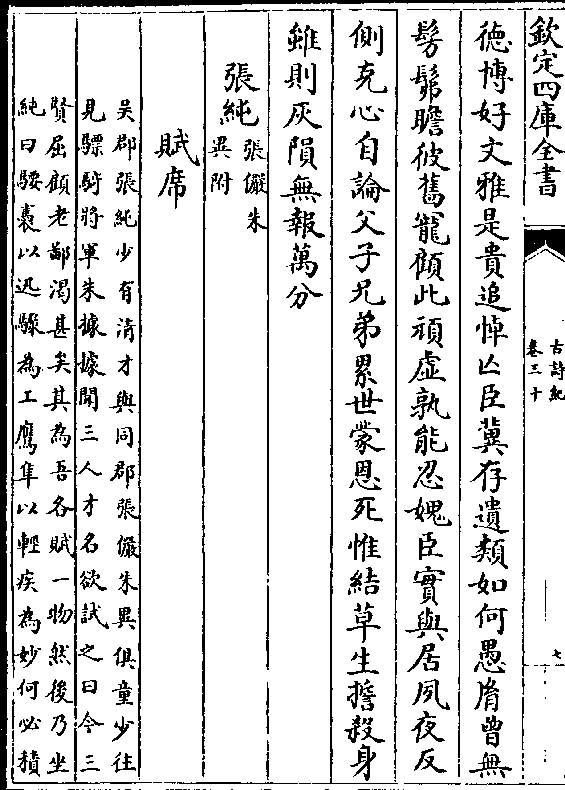 欽定四庫全書
古詩紀
卷三十
七
德博好文雅是貴追悼亡臣冀存遺類如何愚脣曾無
髣髴瞻彼舊寵顧此頑虛孰能忍媿臣實與居夙夜反
側克心自論父子兄弟累世蒙恩死惟結草生擔殺身
雖則灰隕無報萬分
張純
張儼朱
異附
賦席
吳郡張純少有清才與同郡張儼朱異俱童少往
見驃騎將軍朱據據聞三人才名欲試之曰今三
賢屈顧老鄙渴甚矣其為吾各賦一物然後乃坐
純曰騕褭以迅驟為工鷹隼以輕疾為妙何必積